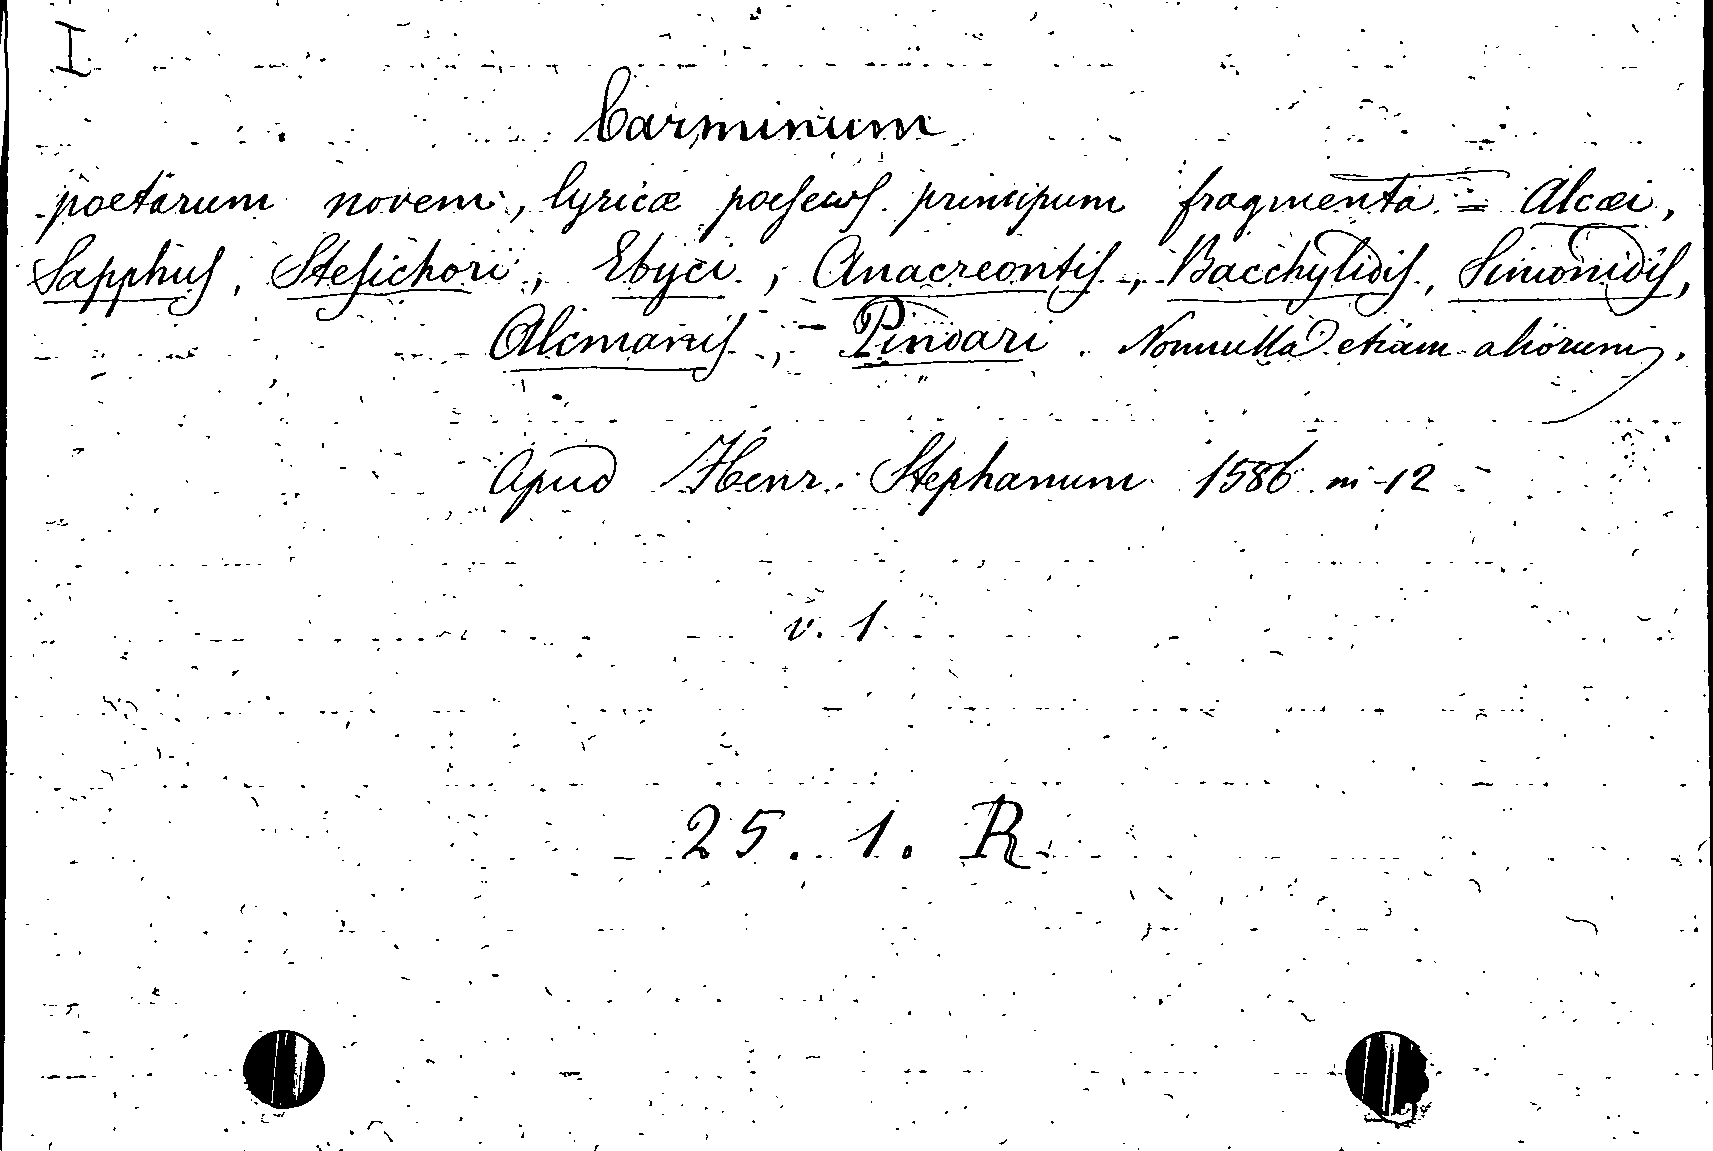 I
Carminum
poetarum novem, lyricæ poesews principum fragmenta = Alcæi,
Sapphus, Stesichori, Ebyci, Anacreontis, Bacchylidis, Simonidis,
Alcmanis, Pindari. Nonnulla etiam aliorum.
Apud Henr. Stephanum 1586 in-12
v. 1
25. 1. R.